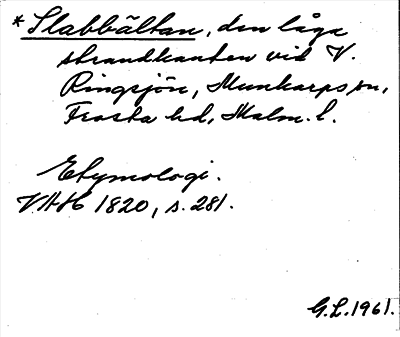 * Slabbältan, den låga
strandkanten vid V.
Ringsjön, Munkarps sn,
Frosta hd, Malm. l.
Etymologi.
VAH 1820, s. 281.
G.L. 1961.